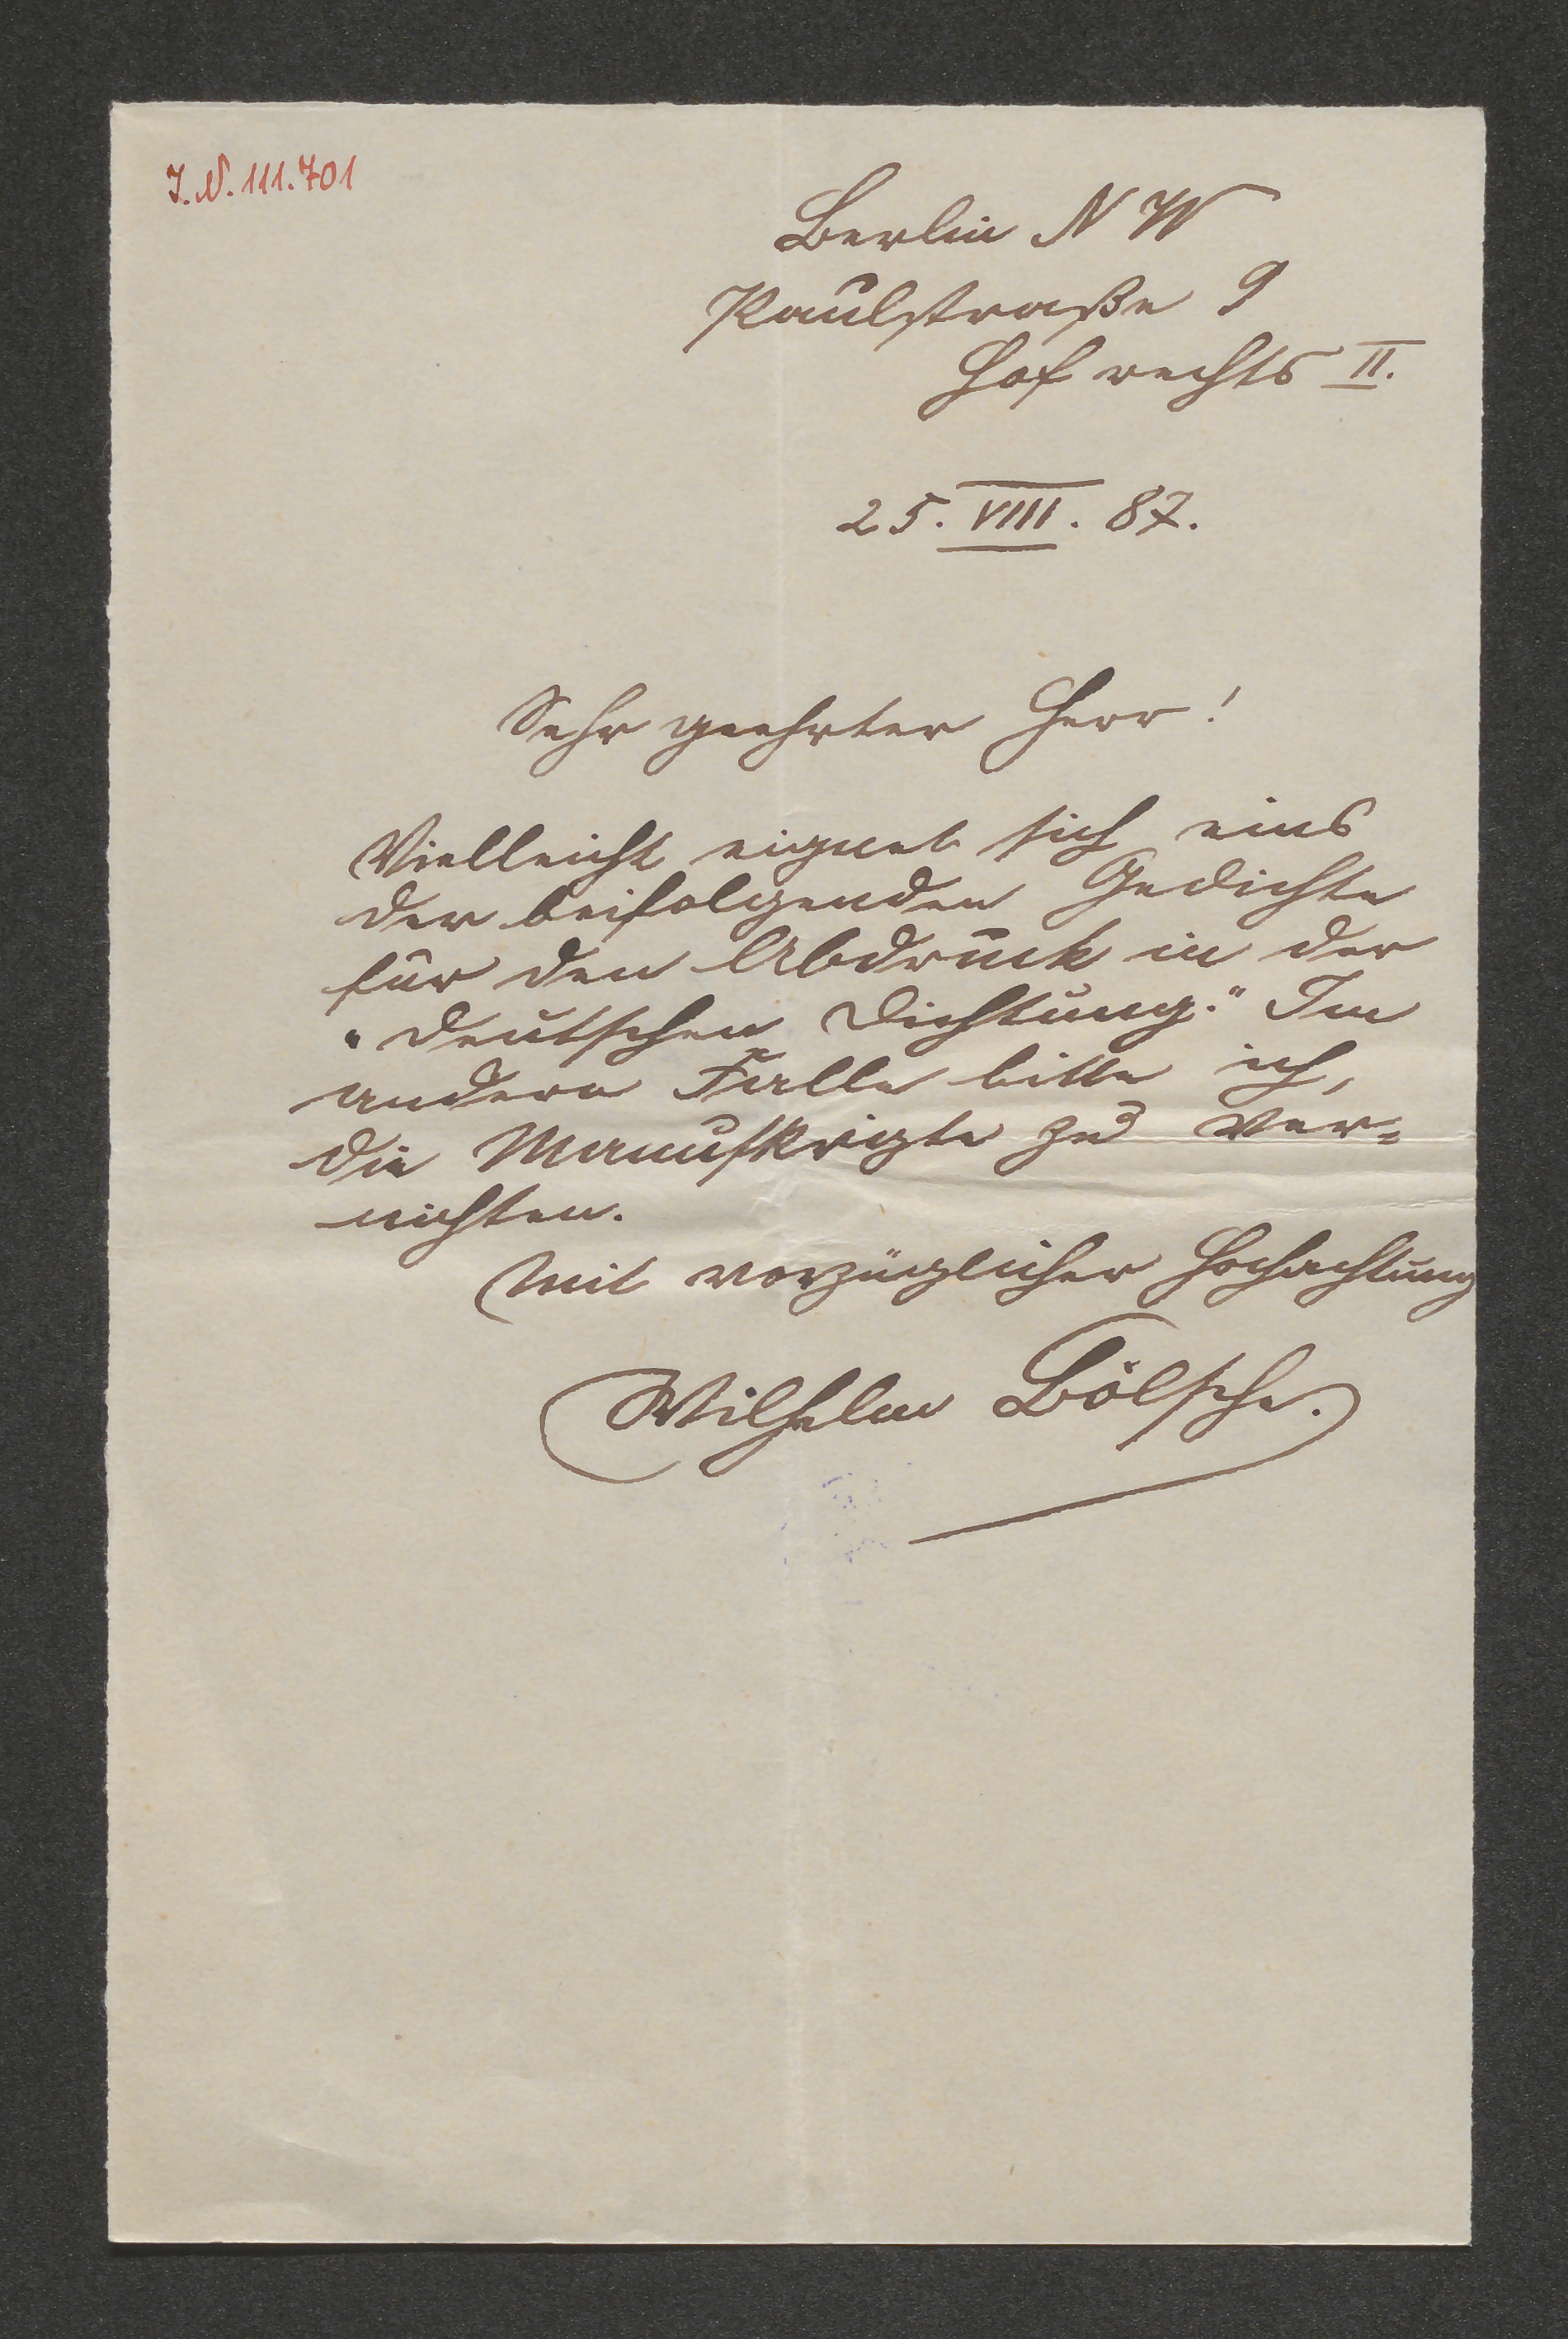 I.N. 111.701
Berlin NW
Paulstraße 9
Hof rechts II.
25. VIII. 87.
Sehr geehrter Herr!
Vielleicht eignet sich eins
der beifolgenden Gedichte
für den Abdruck in der
„Deutschen Dichtung." Im
andern Falle bitte ich,
die Manuskripte zu ver=
nichten.
Mit vorzüglicher Hochachtung
Wilhelm Bölsche.